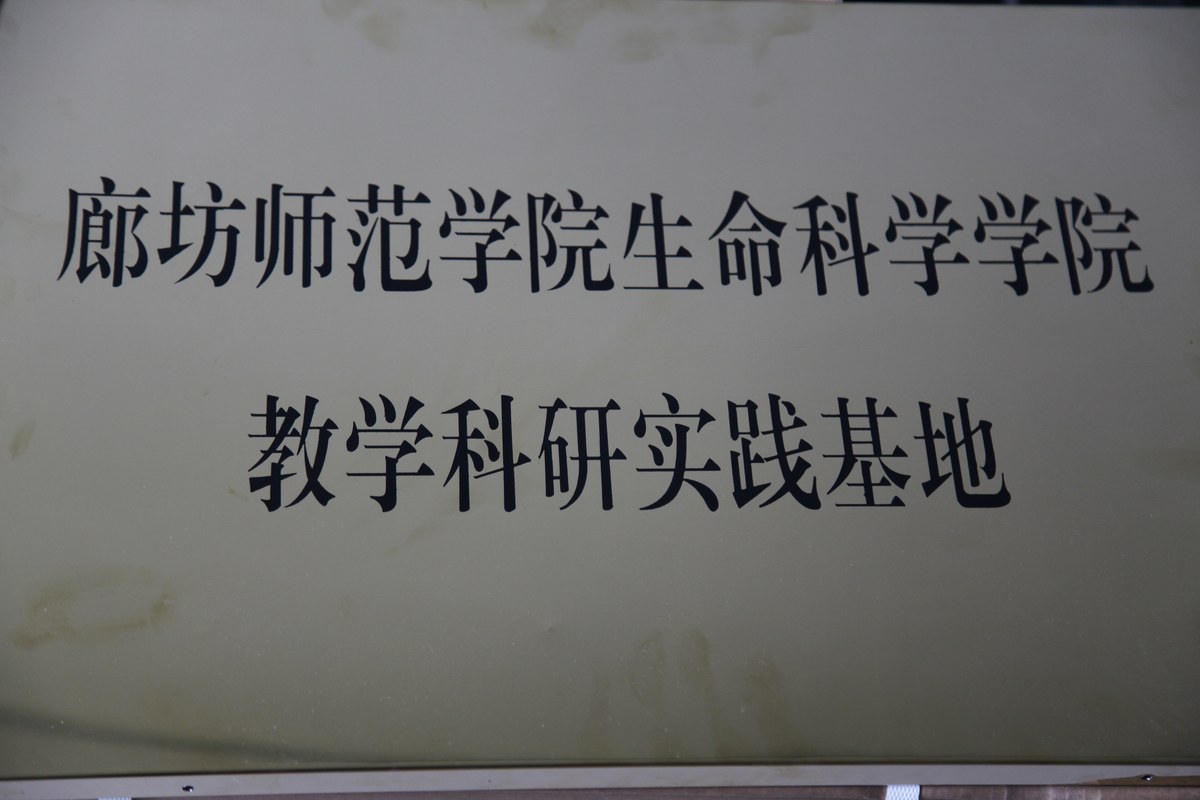 廊坊师范学院生命科学学院
教学科研实践基地